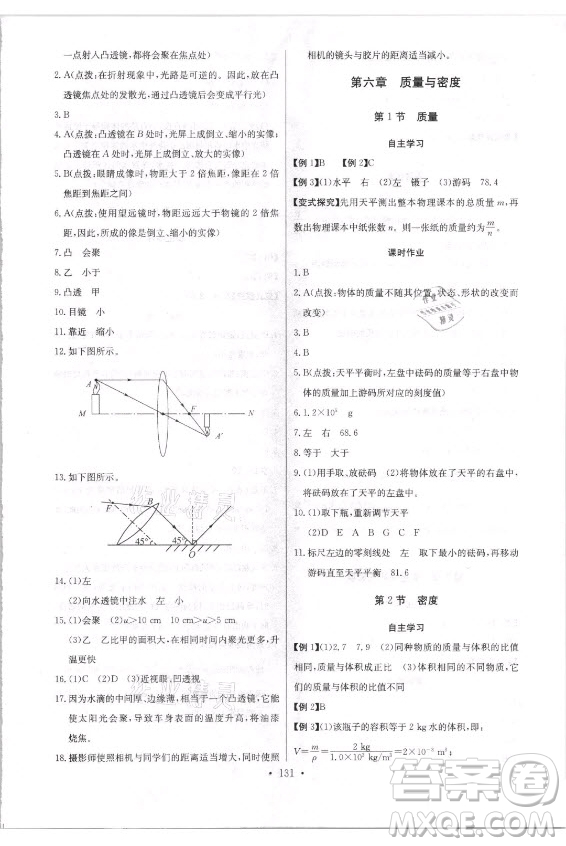 一点射入凸透镜,都将会聚在焦点处)
2. A(点拨:在折射现象中,光路是可逆的。因此,放在凸
透镜焦点处的发散光,通过凸透镜后会变成平行光)
3. B
4. A(点拨:凸透镜在A处时,光屏上成倒立、放大的实像;
凸透镜在B处时,光屏上成倒立、缩小的实像)
5. B(点拨:眼睛成像时,物距大于2倍焦距,像距在2倍
焦距到焦距之间)
6. A(点拨:使用望远镜时,物距远远大于物镜的2倍焦
距,因此,所成的像是倒立、缩小的实像)
7. 凸 会聚
8. 乙 小于
9. 凸透 甲
10. 目镜 小
11. 靠近 缩小
12. 如下图所示。
A
M
F
N
A′
13. 如下图所示。
F
B
45°
45°
O
14. (1)左
(2)向水透镜中注水 左 小
15. (1)会聚 (2)u>10 cm 10 cm>u>5 cm
(3)乙 乙比甲的面积大,在相同时间内聚光更多,升
温更快
16. (1)C (2)D (3)近视眼、凹透镜
17. 因为水滴的中间厚、边缘薄,相当于一个凸透镜,能够
使太阳光会聚,导致车身表面的温度升高,将油漆
烧焦。
18. 摄影师使照相机与同学们的距离适当增大,同时使照
相机的镜头与胶片的距离适当减小。
第六章 质量与密度
第1节 质量
自主学习
【例1】B 【例2】C
【例3】(1)水平 右 (2)左 镊子 (3)游码 78.4
【变式探究】先用天平测出整本物理课本的质量m,再
数出物理课本中纸张数n。则一张纸的质量约为m/n。
课时作业
1. B
2. A(点拨:物体的质量不随其位置、状态、形状的改变而
改变)
3. B
4. A
5. B(点拨:天平平衡时,左盘中砝码的质量等于右盘中物
体的质量加上游码所对应的刻度值)
6. 1.2×10⁵ g
7. 左 右 68.6
8. 等于 大于
9. (1)用手取、放砝码 (2)将物体放在了天平的右盘中,
将砝码放在了天平的左盘中。
10. (1)取下瓶,重新调节天平
(2)D E A B G C F
11. 标尺左边的零刻线处 左 取下最小的砝码,并移动
游码直至天平平衡 81.6
第2节 密度
自主学习
【例1】(1)2.7 7.9 (2)同种物质的质量与体积的比值
相同,质量与体积成正比 (3)相同体积的不同物质,它
们的质量不同(或它们的质量与体积的比值不同)
【例2】B
【例3】(1)该瓶子的容积等于2 kg水的体积,即:
V=m/ρ=2 kg/1.0×10³ kg/m³=2×10⁻³ m³;
131
作业
精灵
作业精灵
作业精灵
答案圈
MXQE.COM